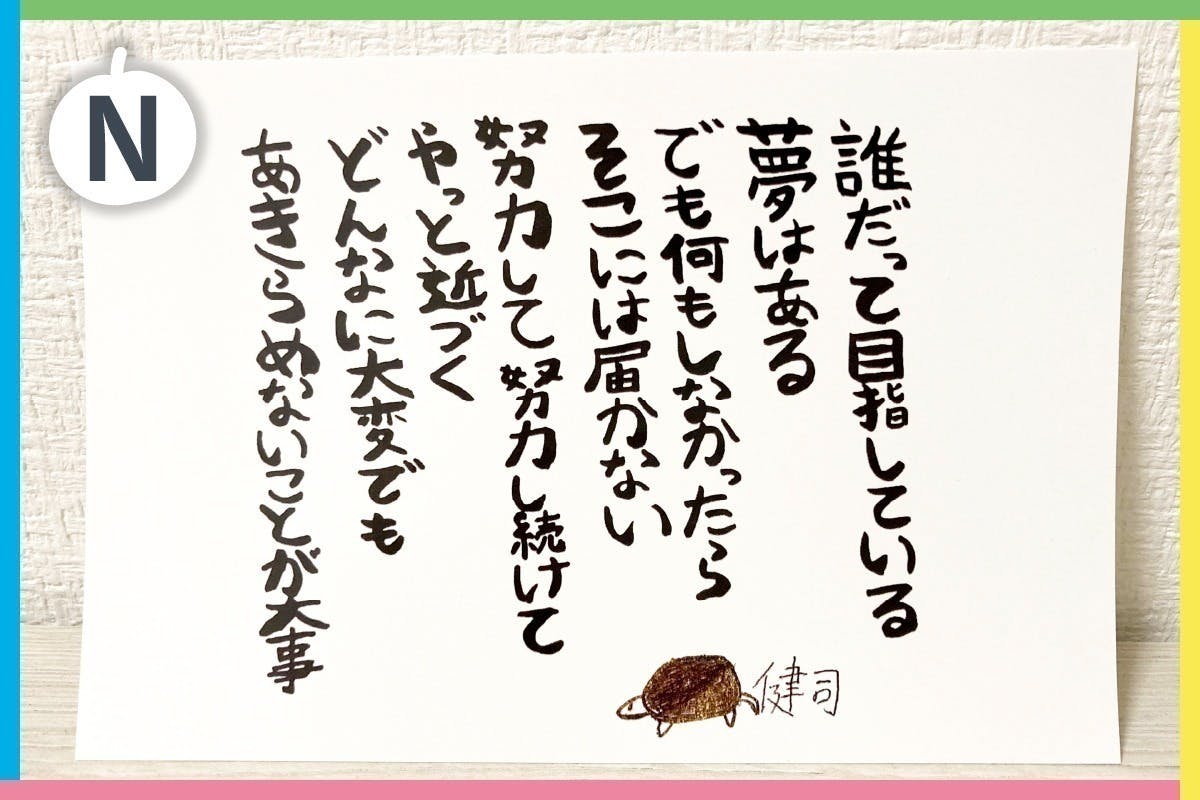 N
誰だって目指している
夢はある
でも何もしなかったら
そこには届かない
努力して努力し続けて
やっと近づく
どんなに大変でも
あきらめないことが大事
健司